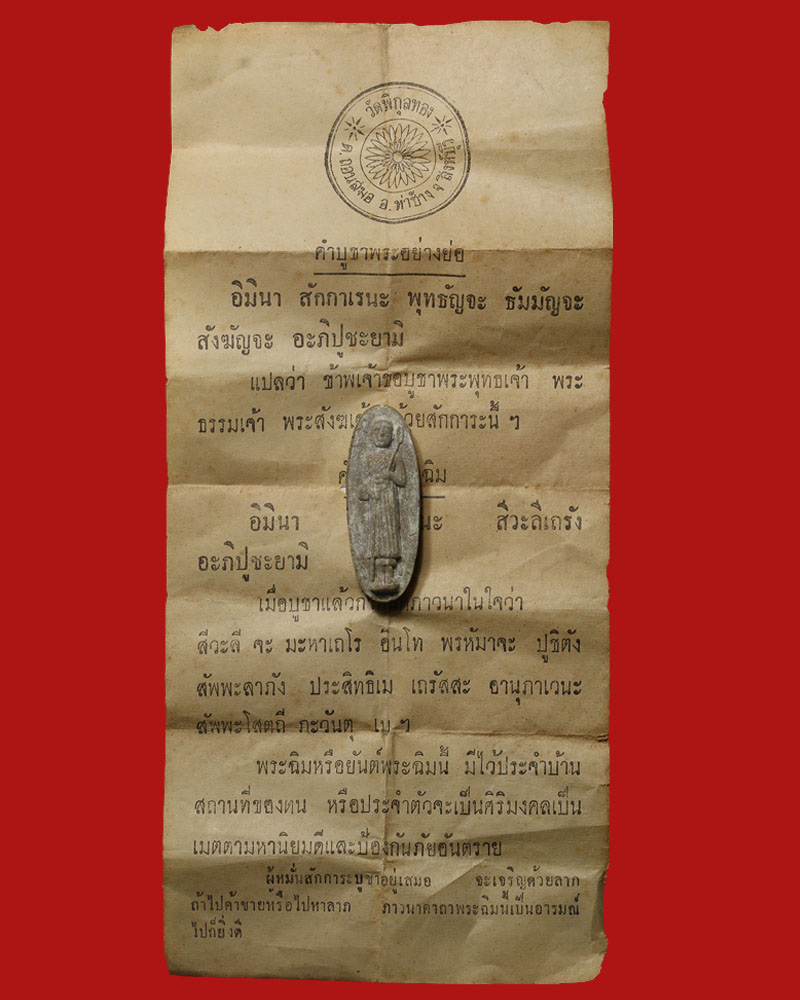 วัดพิกุลทอง
ต.ถอนสมอ อ.ท่าช้าง จ.สิงห์บุรี
คำบูชาพระอย่างย่อ
อิมินา สักกาเรนะ พุทธัญจะ ธัมมัญจะ
สังฆัญจะ อะภิปูชะยามิ
แปลว่า ข้าพเจ้าขอบูชาพระพุทธเจ้า พระ
ธรรมเจ้า พระสังฆเจ้า ด้วยสักการะนี้ ฯ
ฉิม
อิมินา นะ สีวะลีเถรัง
อะภิปูชะยามิ
เมื่อบูชาแล้ว ภาวนาในใจว่า
สีวะลี จะ มะหาเถโร อินโท พรหัมาจะ ปูชิตัง
สัพพะลาภัง ประสิทธิเม เถรัสสะ อานุภาเวนะ
สัพพะโสตถี ภะวันตุ เม ฯ
พระฉิมหรือยันต์พระฉิมนี้ มีไว้ประจำบ้าน
สถานที่ของตน หรือประจำตัวจะเป็นศิริมงคลเป็น
เมตตามหานิยมดีและป้องกันภัยอันตราย
ผู้หมั่นสักการะบูชาอยู่เสมอ จะเจริญด้วยลาภ
ถ้าไปค้าขายหรือไปหาลาภ ภาวนาคาถาพระฉิมนี้เป็นอารมณ์
ไปก็ยิ่งดี